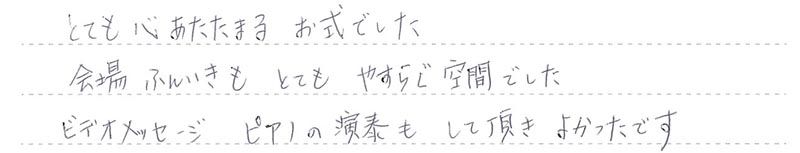 とても心あたたまる お式でした
会場ふんいきも とても やすらぐ空間でした
ビデオメッセージ ピアノの演奏も して頂き よかったです